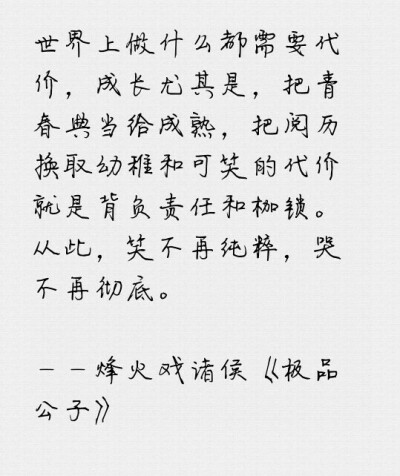 世界上做什么都需要代
价，成长尤其是，把青
春典当给成熟，把阅历
换取幼稚和可笑的代价
就是背负责任和枷锁。
从此，笑不再纯粹，哭
不再彻底。
－－烽火戏诸侯《极品
公子》